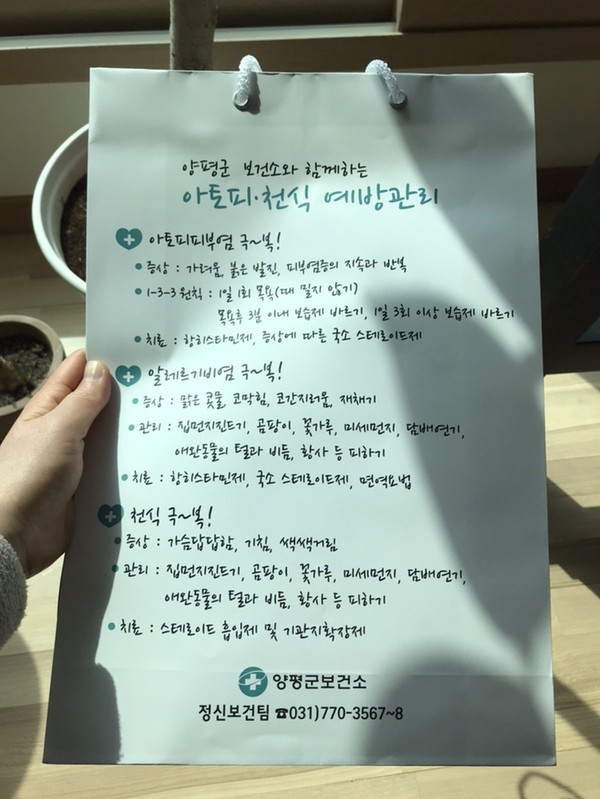 양평군 보건소와 함께하는
아토피·천식 예방관리
아토피피부염 극~복!
• 증상 : 가려움, 붉은 발진, 피부염증의 지속과 반복
• 1-3-3 원칙 : 1일 1회 목욕(때 밀지 않기)
목욕후 3분 이내 보습제 바르기, 1일 3회 이상 보습제 바르기
• 치료 : 항히스타민제, 증상에 따른 국소 스테로이드제
알레르기비염 극~복!
• 증상 : 맑은 콧물, 코막힘, 코간지러움, 재채기
• 관리 : 집먼지진드기, 곰팡이, 꽃가루, 미세먼지, 담배연기,
애완동물의 털과 비듬, 황사 등 피하기
• 치료 : 항히스타민제, 국소 스테로이드제, 면역요법
천식 극~복!
• 증상 : 가슴답답함, 기침, 쌕쌕거림
• 관리 : 집먼지진드기, 곰팡이, 꽃가루, 미세먼지, 담배연기,
애완동물의 털과 비듬, 황사 등 피하기
• 치료 : 스테로이드 흡입제 및 기관지확장제
양평군보건소
정신보건팀 ☎031)770-3567~8